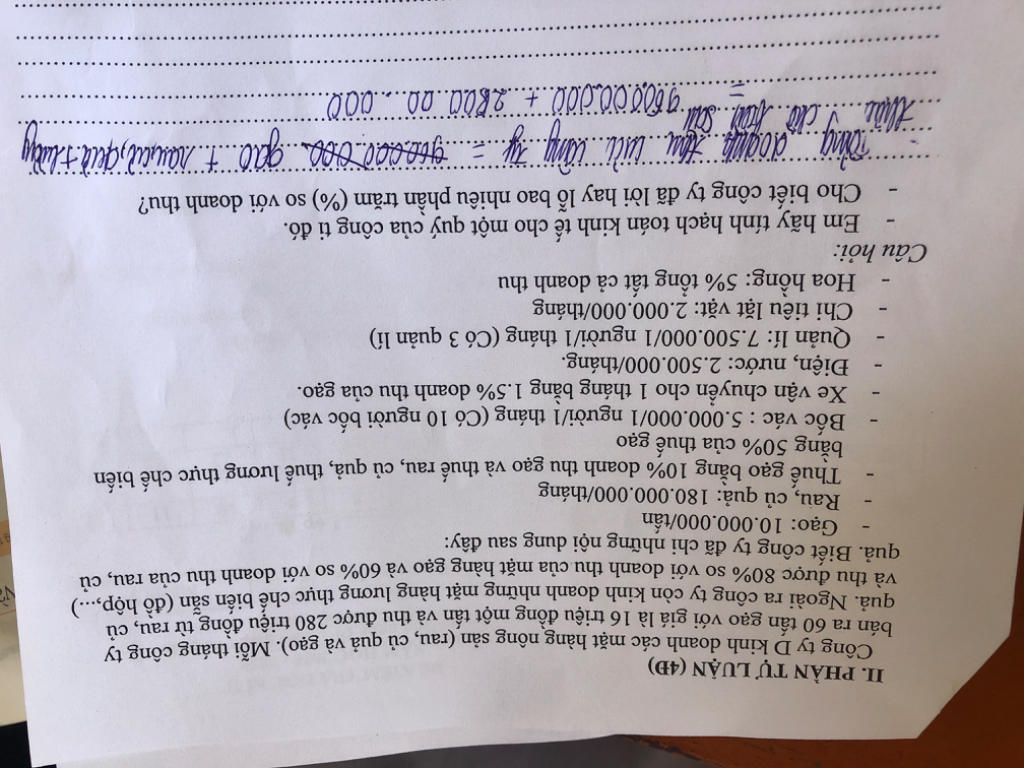 II. PHẦN TỰ LUẬN (4Đ)
Công ty D kinh doanh các mặt hàng nông sản (rau, củ quả và gạo). Mỗi tháng công ty
bán ra 60 tấn gạo với giá là 16 triệu đồng một tấn và thu được 280 triệu đồng từ rau, củ
quả. Ngoài ra công ty còn kinh doanh những mặt hàng lương thực chế biến sẵn (đồ hộp,...)
và thu được 80% so với doanh thu của mặt hàng gạo và 60% so với doanh thu của rau, củ
quả. Biết công ty đã chi những nội dung sau đây:
- Gạo: 10.000.000/tấn
- Rau, củ quả: 180.000.000/tháng
- Thuế gạo bằng 10% doanh thu gạo và thuế rau, củ quả, thuế lương thực chế biến
bằng 50% của thuế gạo
- Bốc vác : 5.000.000/1 người/1 tháng (Có 10 người bốc vác)
- Xe vận chuyển cho 1 tháng bằng 1.5% doanh thu của gạo.
- Điện, nước: 2.500.000/tháng.
- Quản lí: 7.500.000/1 người/1 tháng (Có 3 quản lí)
- Chi tiêu lặt vặt: 2.000.000/tháng
- Hoa hồng: 5% tổng tất cả doanh thu
Câu hỏi:
- Em hãy tính hạch toán kinh tế cho một quý của công ti đó.
- Cho biết công ty đã lời hay lỗ bao nhiêu phần trăm (%) so với doanh thu?
Tổng doanh thu của công ty = gạo + rau củ, quả + lương
thực chế biến sẵn
= 960.000.000 + 2800 00 . 000